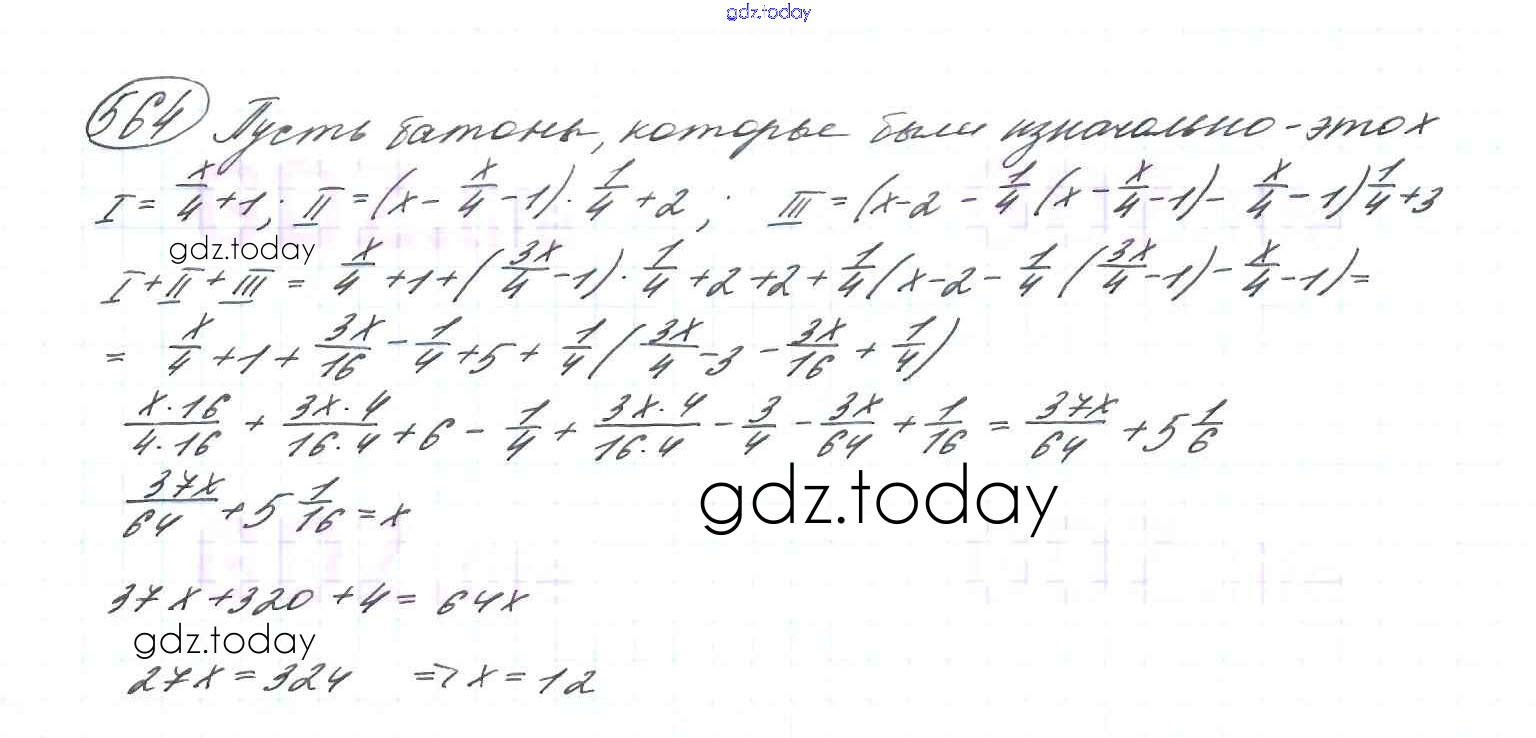 gdz.today
564 Пусть батоны, которые были изначально - это x
I = x/4 + 1; II = (x - x/4 - 1) · 1/4 + 2; III = (x - 2 - 1/4 (x - x/4 - 1) - x/4 - 1) 1/4 + 3
gdz.today
I + II + III = x/4 + 1 + (3x/4 - 1) · 1/4 + 2 + 2 + 1/4 (x - 2 - 1/4 (3x/4 - 1) - x/4 - 1) =
= x/4 + 1 + 3x/16 - 1/4 + 5 + 1/4 (3x/4 - 3 - 3x/16 + 1/4)
x·16/4·16 + 3x·4/16·4 + 6 - 1/4 + 3x·4/16·4 - 3/4 - 3x/64 + 1/16 = 37x/64 + 5 1/6
37x/64 + 5 1/16 = x
gdz.today
37x + 320 + 4 = 64x
gdz.today
27x = 324 => x = 12